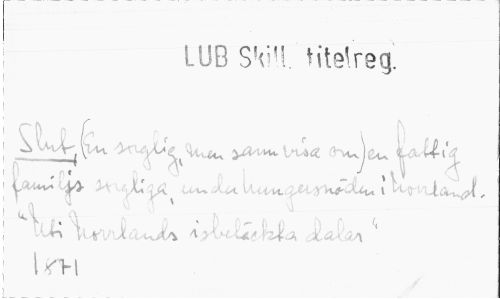 LUB Skill. titelreg.
Slut, (En sorglig, men sann visa om) en fattig
familjs sorgliga, under hungersnöden i Norrland.
"Uti Norrlands isbetäckta dalar"
1871